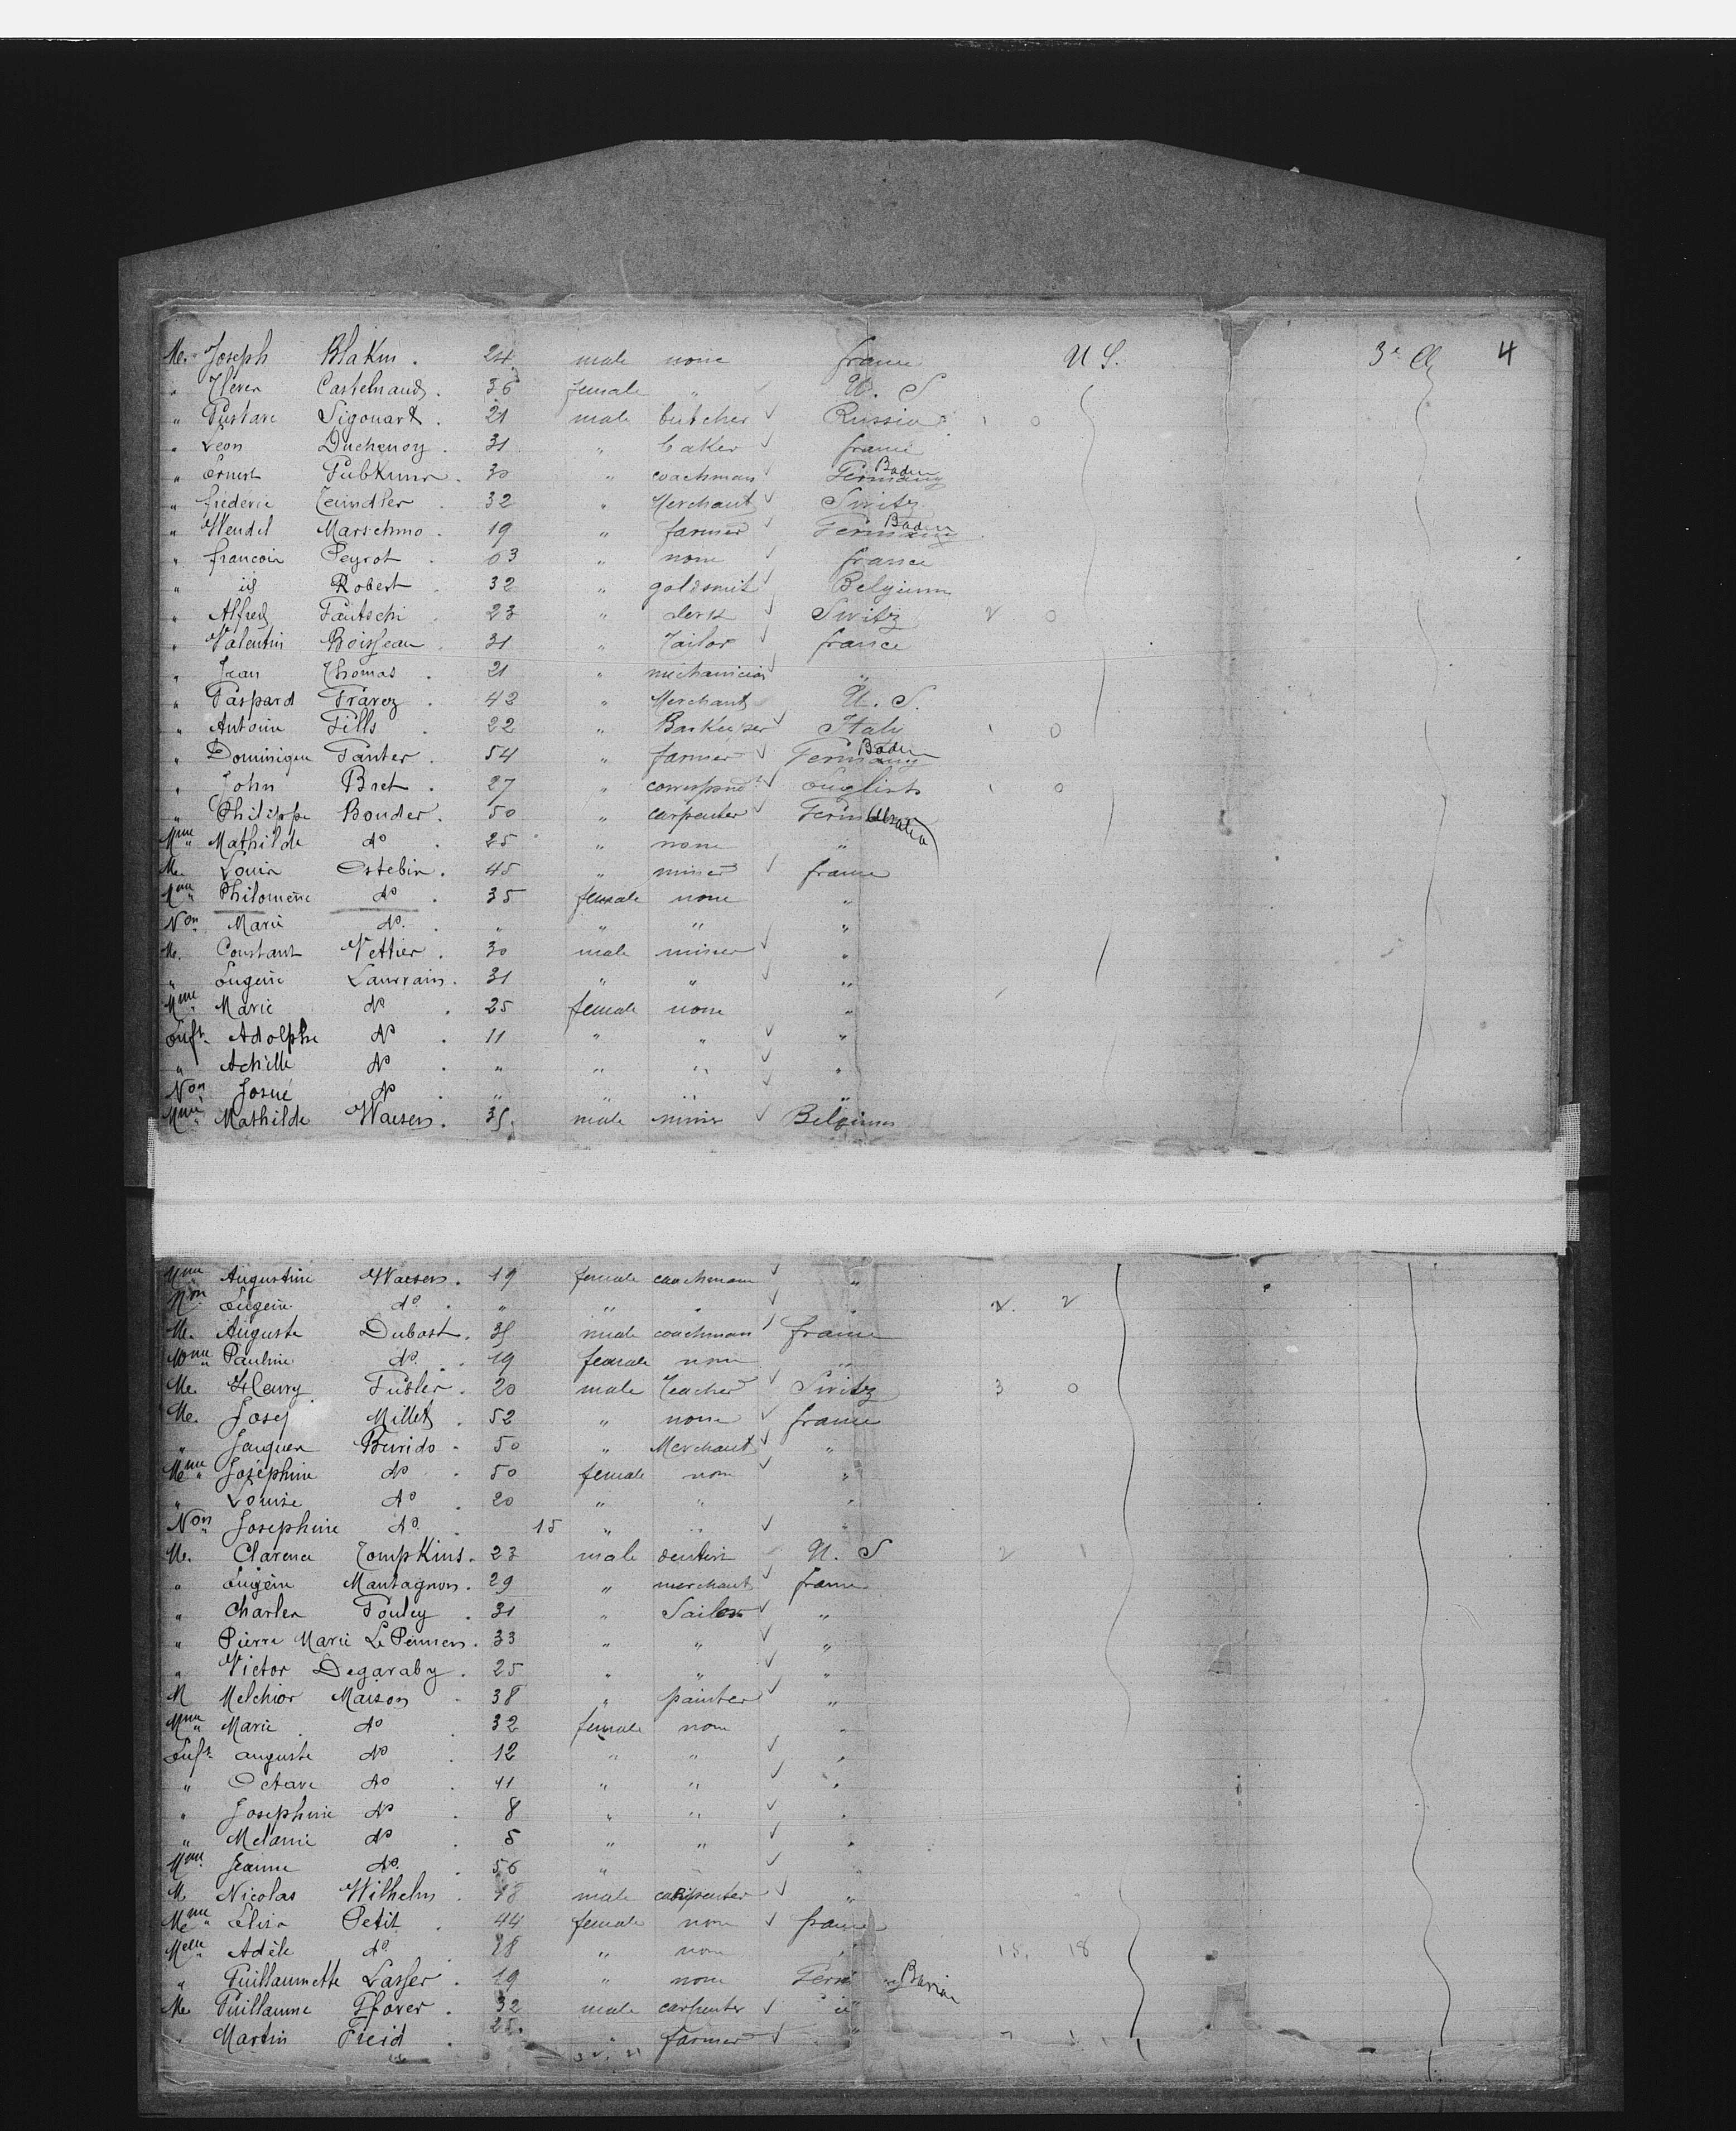 Mr. Joseph Blakin . 24 male none france U S. 3e Cl 4
" Clever Castelnaud . 36 female " U. S
" Gustave Sigouart . 21 male butcher ✓ Russia 1 0
" Leon Duchenoy . 31 " baker ✓ france
" Ernest Gubkunr . 30 " coachman Germany Baden
" frederic Zeindler . 32 " Merchant ✓ Switz
" Wendel Marschmo . 19 " farmer ✓ Germany Baden
" francois Peyrot . 63 " none ✓ france
" id Robert . 32 " goldsmit ✓ Belgium
" Alfred Gautschi . 23 " clerk ✓ Switz 2 0
" Valentin Boisseau . 31 " Tailor ✓ france
" Jean Thomas . 21 " michanician "
" Gaspard Gravez . 42 " Merchant U. S.
" Antoine Gills . 22 " Barkeeper ✓ Italy 1 0
" Dominique Ganter . 54 " farmer ✓ Germany Baden
" John Bret . 27 " correspond ✓ english 1 0
" Philippe Bouder . 50 " carpenter ✓ Germ
Mme " Mathilde do . 25 " none "
Mr. Louis Ostebin . 45 " miner ✓ france
Mme " Philomene do . 35 female none "
Non Marie do . " " " "
Mr. Constant Vettier . 30 male miner ✓ "
" Eugene Laurrain . 31 " " ✓ "
Mme Marie do . 25 female none "
Enft. Adolphe do . 11 " " ✓ "
" Achille do . " " " ✓ "
Non Josué do . " " " ✓ "
Mme Mathilde Waesen . 35. male miner ✓ Belgium
Mme " Augustine Waesen . 19 female coachmann ✓ "
Non Eugene do . " " " ✓ " 2. 2
Mr. Auguste Dubost . 35 male coachman france
Mme " Pauline do . 19 female none "
Mr. Henry Gubler . 20 male Teacher ✓ Switz 3 0
Mr. Josep Millet . 52 " none ✓ france
" Jacques Burido . 50 " Merchant ✓ "
Mme " Josephine do . 50 female none ✓ "
" Louise do . 20 " " "
Non Josephine do . 15 " " ✓ "
Mr. Clarence Tompkins . 23 male dentist U. S 2 1
" Eugène Mantagnon . 29 " merchant ✓ france
" Charles Pouley . 31 " Sailor ✓ "
" Pierre Marie Le Pennen . 33 " " ✓ "
" Victor Degaraby . 25 " " ✓ "
M Melchior Maison . 38 " painter ✓ "
Mme " Marie do . 32 female none "
Enft. auguste do . 12 " " ✓ "
" Octave do . 11 " " ✓ "
" Josephine do . 8 " " ✓ "
" Melanie do . 5 " " ✓ "
Mme Jeanne do . 56 " " ✓ "
M Nicolas Wilhelm . 48 male carpenter ✓ "
Mme " Elisa Petit . 44 female none ✓ france
Melle " Adèle do . 28 " none " 18. 18
" Guillaumette Lasser . 19 " none Germ
Mr. Guillaume Pfover . 32 male carpenter ✓ id
" Martin Freid . 25. " farmer ✓ "